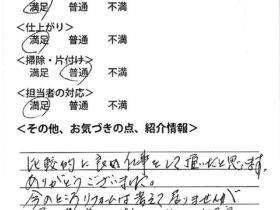 満足 普通 不満
<仕上がり>
満足 普通 不満
<掃除・片付け>
満足 普通 不満
<担当者の対応>
満足 普通 不満
<その他、お気づきの点、紹介情報>
比較的に良い仕事をして頂いたと思います。
ありがとうございました。
今のところリフォームは考えて居りませんが